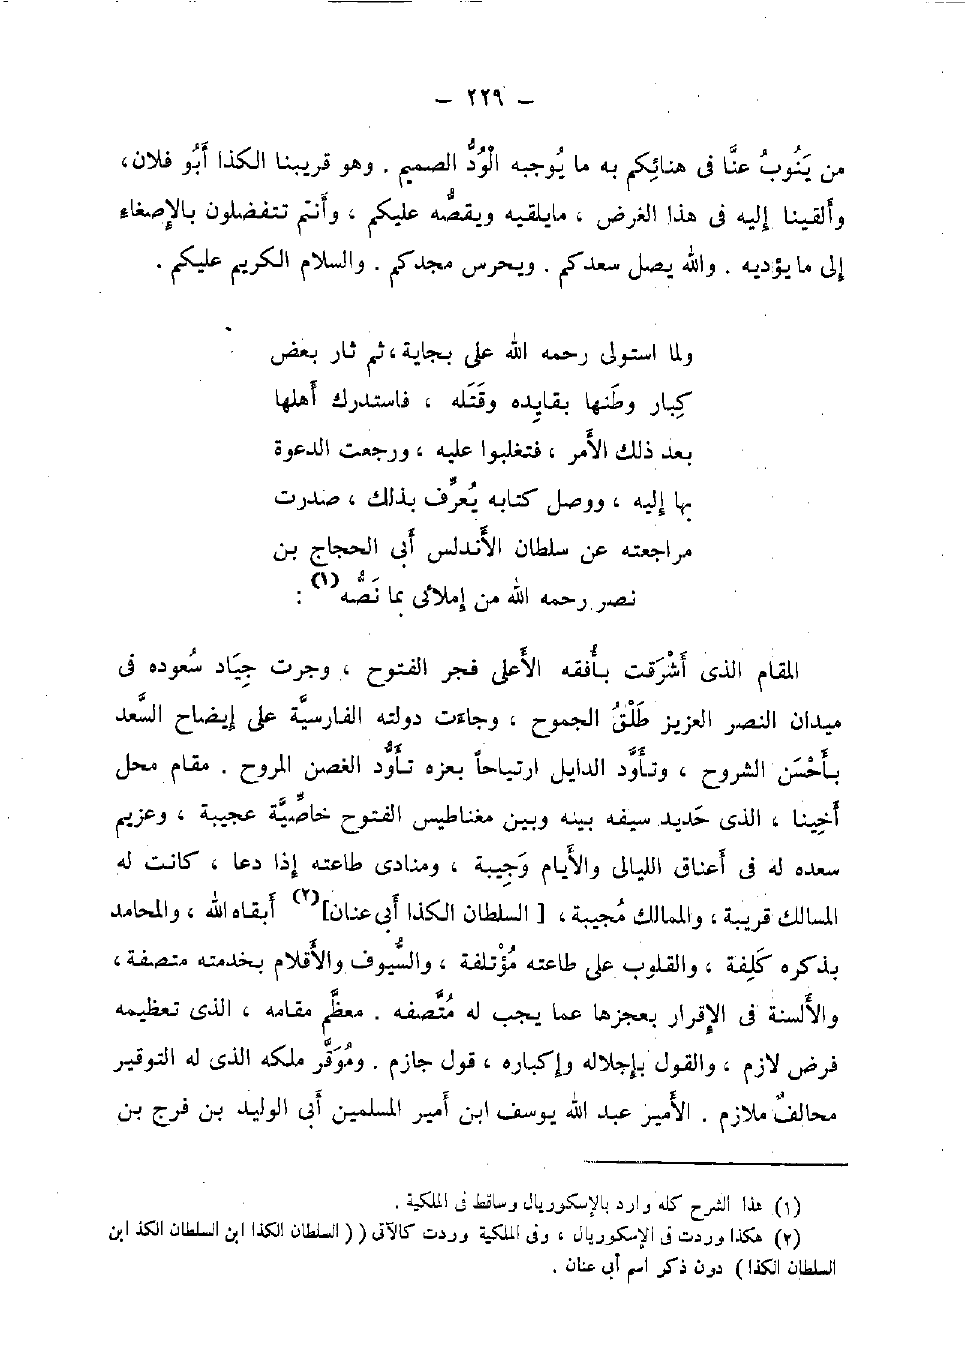 — ٢٢٩ —
من يَنُوبُ عنَّا فى هنائِكم به ما يُوجبه الْوُدُّ الصميم . وهو قريبنا الكذا أَبُو فلان،
وألقينا إليه فى هذا الغرض ، مايلقيه ويقصُّه عليكم ، وأنتم تتفضلون بالإصغاء
إلى ما يؤديه . والله يصل سعدكم . ويحرس مجدكم . والسلام الكريم عليكم .
ولما استولى رحمه الله على بجاية ، ثم ثار بعض
كِبار وطَنها بقايِده وقَتَله ، فاستدرك أَهلها
بعد ذلك الأَمر ، فتغلبوا عليه ، ورجعت الدعوة
بها إليه ، ووصل كتابه يُعرِّف بذلك ، صدرت
مراجعته عن سلطان الأَندلس أَبى الحجاج بن
نصر رحمه الله من إملائى بما نَصُّه (١) :
المقام الذى أَشْرَقت بأُفقه الأَعلى فجر الفتوح ، وجرت جِيَاد سُعوده فى
ميدان النصر العزيز طَلْقُ الجموح ، وجاءت دولته الفارسيَّة على إيضاح السَّعد
بأَحْسَن الشروح ، وتأَوَّد الدايل ارتياحاً بعزه تأَوُّد الغصن المروح . مقام محل
أَخِينا ، الذى حَديد سيفه بينه وبين مغناطيس الفتوح خاصِّيَّة عجيبة ، وعزيم
سعده له فى أَعناق الليالى والأَيام وَجِيبة ، ومنادى طاعته إذا دعا ، كانت له
المسالك قريبة ، والممالك مُجيبة ، [ السلطان الكذا أَبى عنان] (٢) أَبقاه الله ، والمحامد
بذكره كَلِفة ، والقلوب على طاعته مُؤْتلفة ، والسُّيوف والأَقلام بخدمته متصفة ،
والأَلسنة فى الإِقرار بعجزها عما يجب له مُتَّصفه . معظَّم مقامه ، الذى تعظيمه
فرض لازم ، والقول بإجلاله وإكباره ، قول جازم . ومُوَقَّر ملكه الذى له التوقير
محالفٌ ملازم . الأَمير عبد الله يوسف ابن أَمير المسلمين أَبى الوليد بن فرج بن
(١) هذا الشرح كله وارد بالإسكوريال وساقط فى الملكية .
(٢) هكذا وردت فى الإسكوريال ، وفى الملكية وردت كالآتى ( ( السلطان الكذا ابن السلطان الكذ ابن
السلطان الكذا ) دون ذكر اسم أبى عنان .